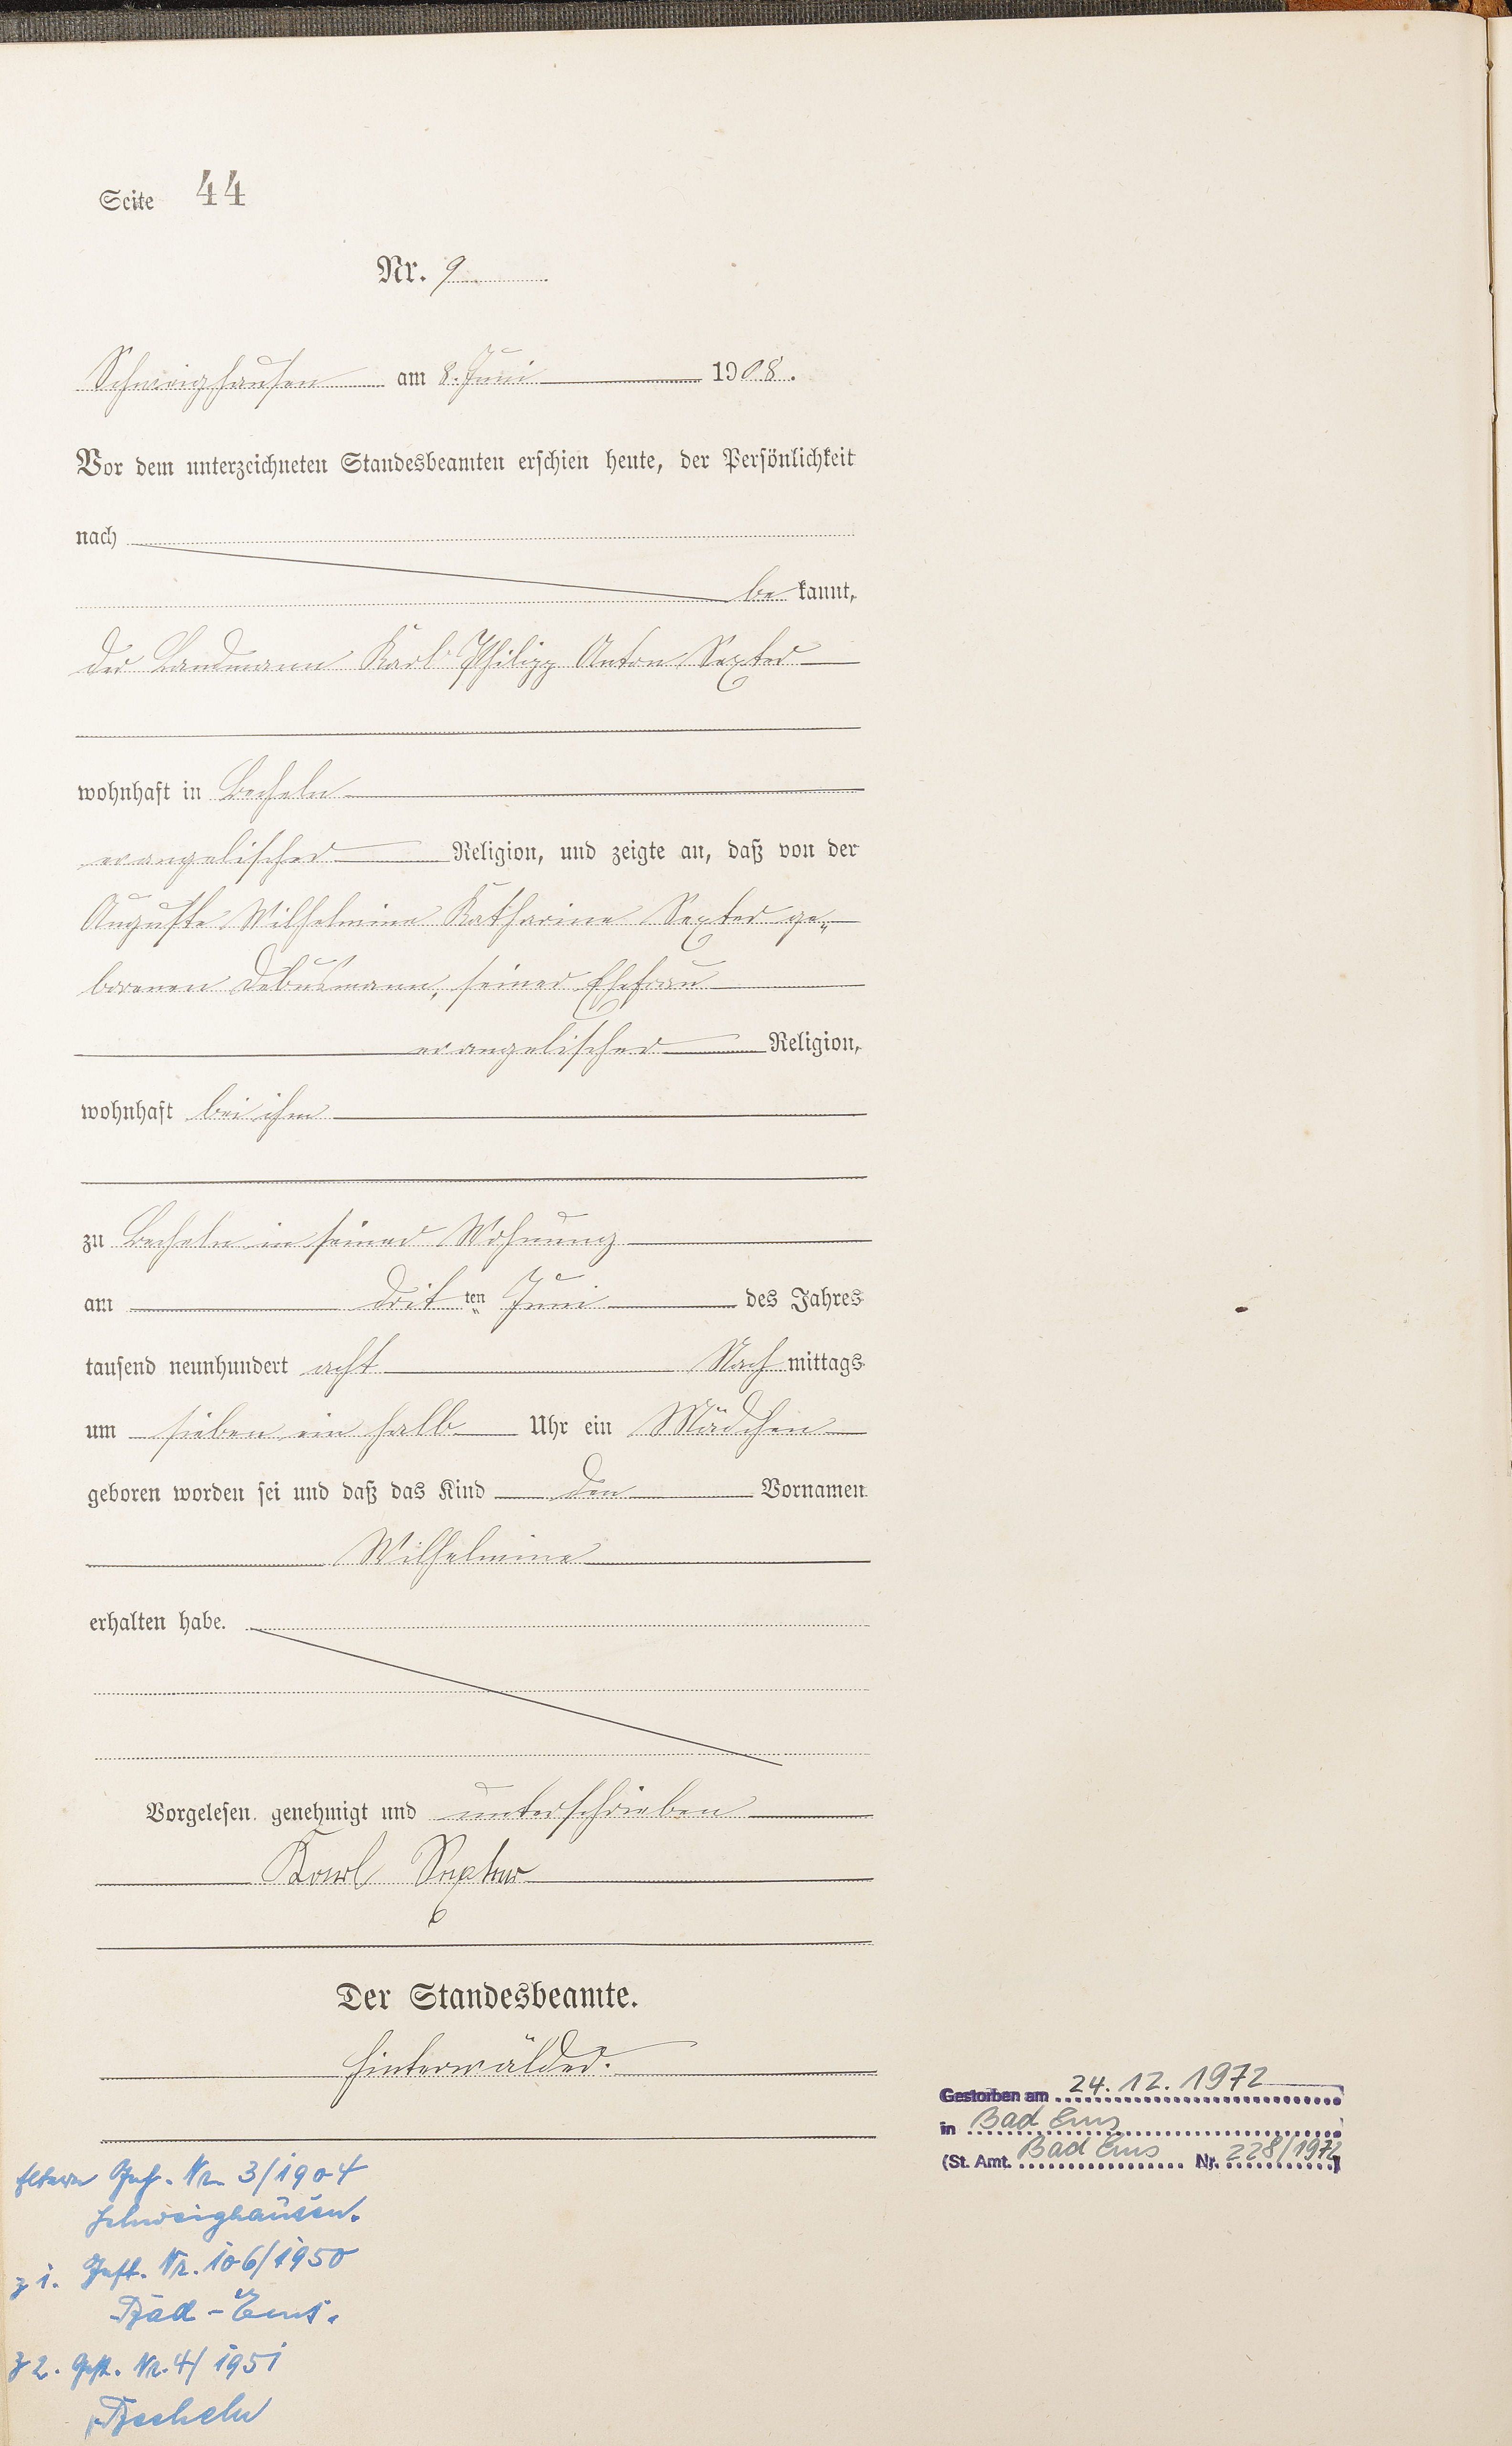 Seite 44
Nr. 9
Schweighausen am 8. Juni 1908.
Vor dem unterzeichneten Standesbeamten erschien heute, der Persönlichkeit
nach
be kannt,
der Landmann Karl Philipp Anton Sexter
wohnhaft in Becheln
evangelischer Religion, und zeigte an, daß von der
Auguste Wilhelmine Katharine Sexter ge-
borenen Debusmann, seiner Ehefrau
evangelischer Religion,
wohnhaft bei ihm
zu Becheln in seiner Wohnung
am drit ten Juni des Jahres
tausend neunhundert acht Nach mittags
um sieben ein halb Uhr ein Mädchen
geboren worden sei und daß das Kind den Vornamen
Wilhelmine
erhalten habe.
Vorgelesen, genehmigt und unterschrieben
Karl Sexter
Der Standesbeamte.
Hinterwälder.
Gestorben am 24.12.1972
in Bad Ems
(St. Amt. Bad Ems Nr. 228/1972)
Eltern Nr. 3/1904
Schweighausen.
1. Nr. 106/1950
Bad-Ems.
2. Nr. 4/1951
Becheln